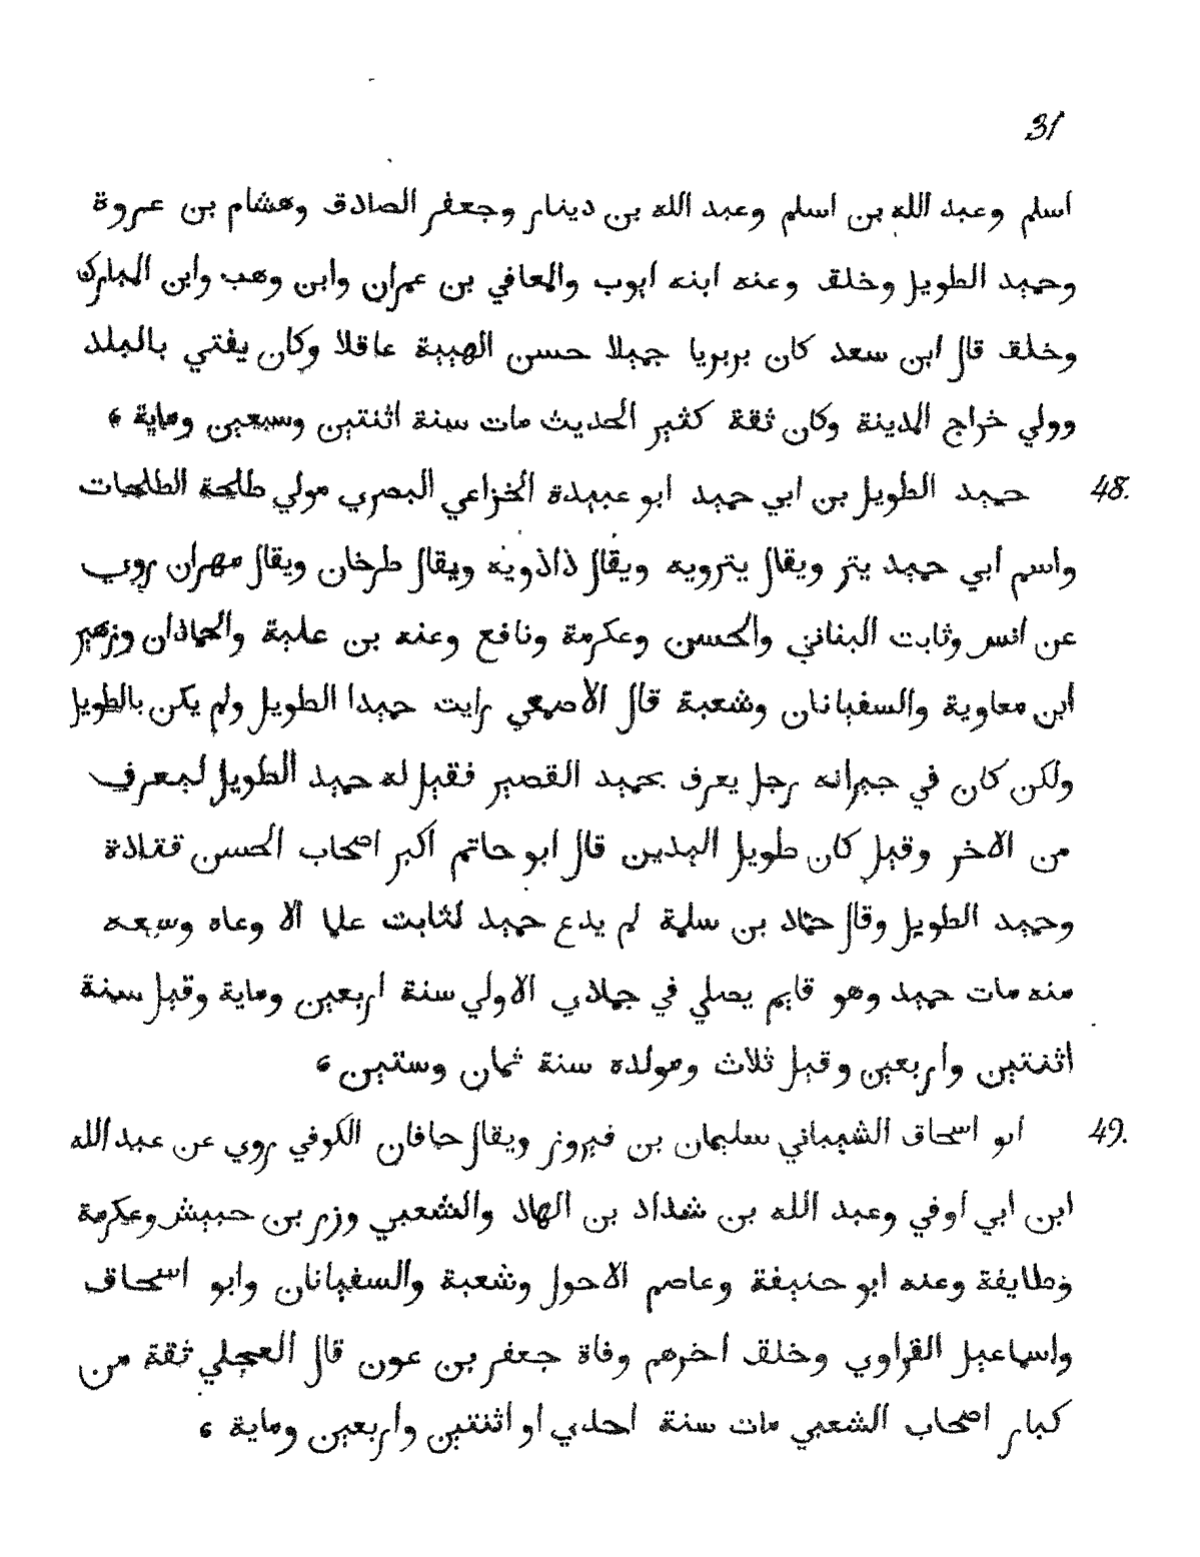 31
اسلم وعبد الله بن اسلم وعبد الله بن دينار وجعفر الصادق وهشام بن عروة
وحميد الطويل وخلق وعنه ابنه ايوب والمعافي بن عمران وابن وهب وابن المبارك
وخلق قال ابن سعد كان بربريا جميلا حسن الهيية عاقلا وكان يفتي بالبلد
وولي خراج المدينة وكان ثقة كثير الحديث مات سنة اثنتين وسبعين وماية ،
48. حميد الطويل بن ابي حميد ابو عبيدة الخزاعي البصري مولي طلحة الطلحات
واسم ابي حميد يتر ويقال يترويه ويقال ذاذويه ويقال طرخان ويقال مهران روي
عن انس وثابت البناني والحسن وعكرمة ونافع وعنه بن علية والحماذان وزهير
ابن معاوية والسفيانان وشعبة قال الاصمعي رايت حميدا الطويل ولم يكن بالطويل
ولكن كان في جيرانه رجل يعرف بحميد القصير فقيل له حميد الطويل ليعرف
من الاخر وقيل كان طويل اليدين قال ابو حاتم اكبر اصحاب الحسن قتادة
وحميد الطويل وقال حماد بن سلمة لم يدع حميد لثابت علما الا وعاه وسمعه
منه مات حميد وهو قايم يصلي في جمادي الاولي سنة اربعين وماية وقيل سنة
اثنتين واربعين وقيل ثلاث ومولده سنة ثمان وستين ،
49. ابو اسحاق الشيباني سليمان بن فيروز ويقال خافان الكوفي روي عن عبد الله
ابن ابي اوفي وعبد الله بن شداد بن الهاد والشعبي وزر بن حبيش وعكرمة
وطايفة وعنه ابو حنيفة وعاصم الاحول وشعبة والسفيانان وابو اسحاق
واسماعيل القراوي وخلق اخرهم وفاة جعفر بن عون قال العجلي ثقة من
كبار اصحاب الشعبي مات سنة احدي او اثنتين واربعين وماية ،